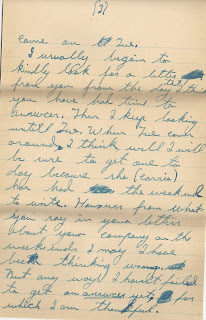 (2)
came on Tue.
I usually begain to
kindly look for a letter
from you from the day that
you have had time to
answer. Then I keep looking
untill Tue. When Tue come
around, I think well I will
be sure to get one to
day because she (Carrie)
has had the weekend
to write. However from what
you say in your letter
about your company on the
weekends I may have
been thinking wrong.
But any way I havent failed
to get an answer yet for
which I am thankful.